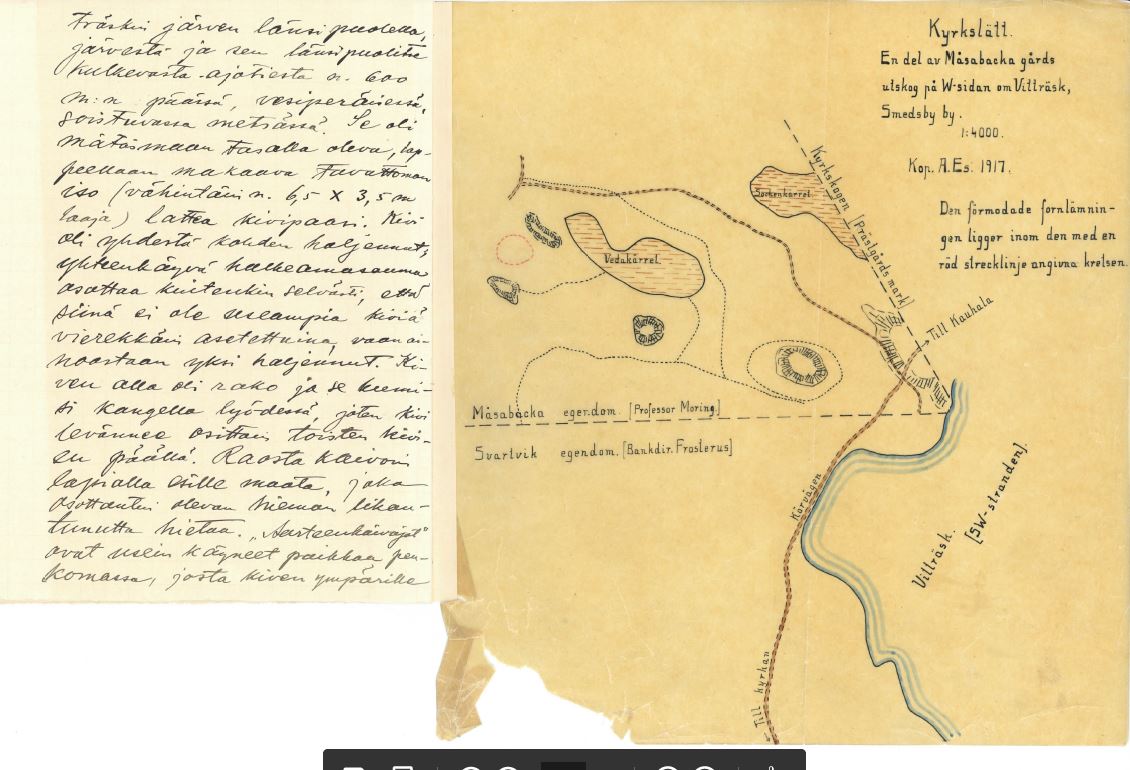 Träskin järven länsipuolella,
järvestä ja sen länsipuolitse
kulkevasta ajotiestä n. 600
m:n päässä, vesiperäisessä,
soistuvassa metsässä. Se oli
mätäsmaan tasalla oleva, lap-
peellaan makaava tavattoman
iso (vähintäin n. 6,5 X 3,5 m
laaja) lattea kivipaasi. Kivi
oli yhdestä kohden haljennut,
yhteenkäypä halkeamasauma
osottaa kuitenkin selvästi, että
siinä ei ole useampia kiviä
vierekkäin asetettuina, vaan ai-
noastaan yksi haljennut. Ki-
ven alla oli rako ja se kumi-
si kangella lyödessä, joten kivi
levännee osittain toisten kivi-
en päällä. Raosta kaivoin
lapialla esille maata, joka
osottautui olevan hieman likau-
tunutta hietaa. „Aarteenkaivajat"
ovat usein käyneet paikkaa pen-
komassa, josta kiven ympärille
Kyrkslätt.
En del av Måsabacka gårds
utskog på W-sidan om Vitträsk,
Smedsby by.
1:4000.
Kop. A.Es. 1917.
Den förmodade fornlämnin-
gen ligger inom den med en
röd strecklinje angivna kretsen.
Kyrkskogen [Prästgårds mark]
Sockenkärret
Vedakärret
Till Kauhala
Måsabacka egendom. [Professor Moring.]
Svartvik egendom. [Bankdir. Frosterus]
Körvägen
Vitträsk.
[SW-stranden].
Till kyrkan